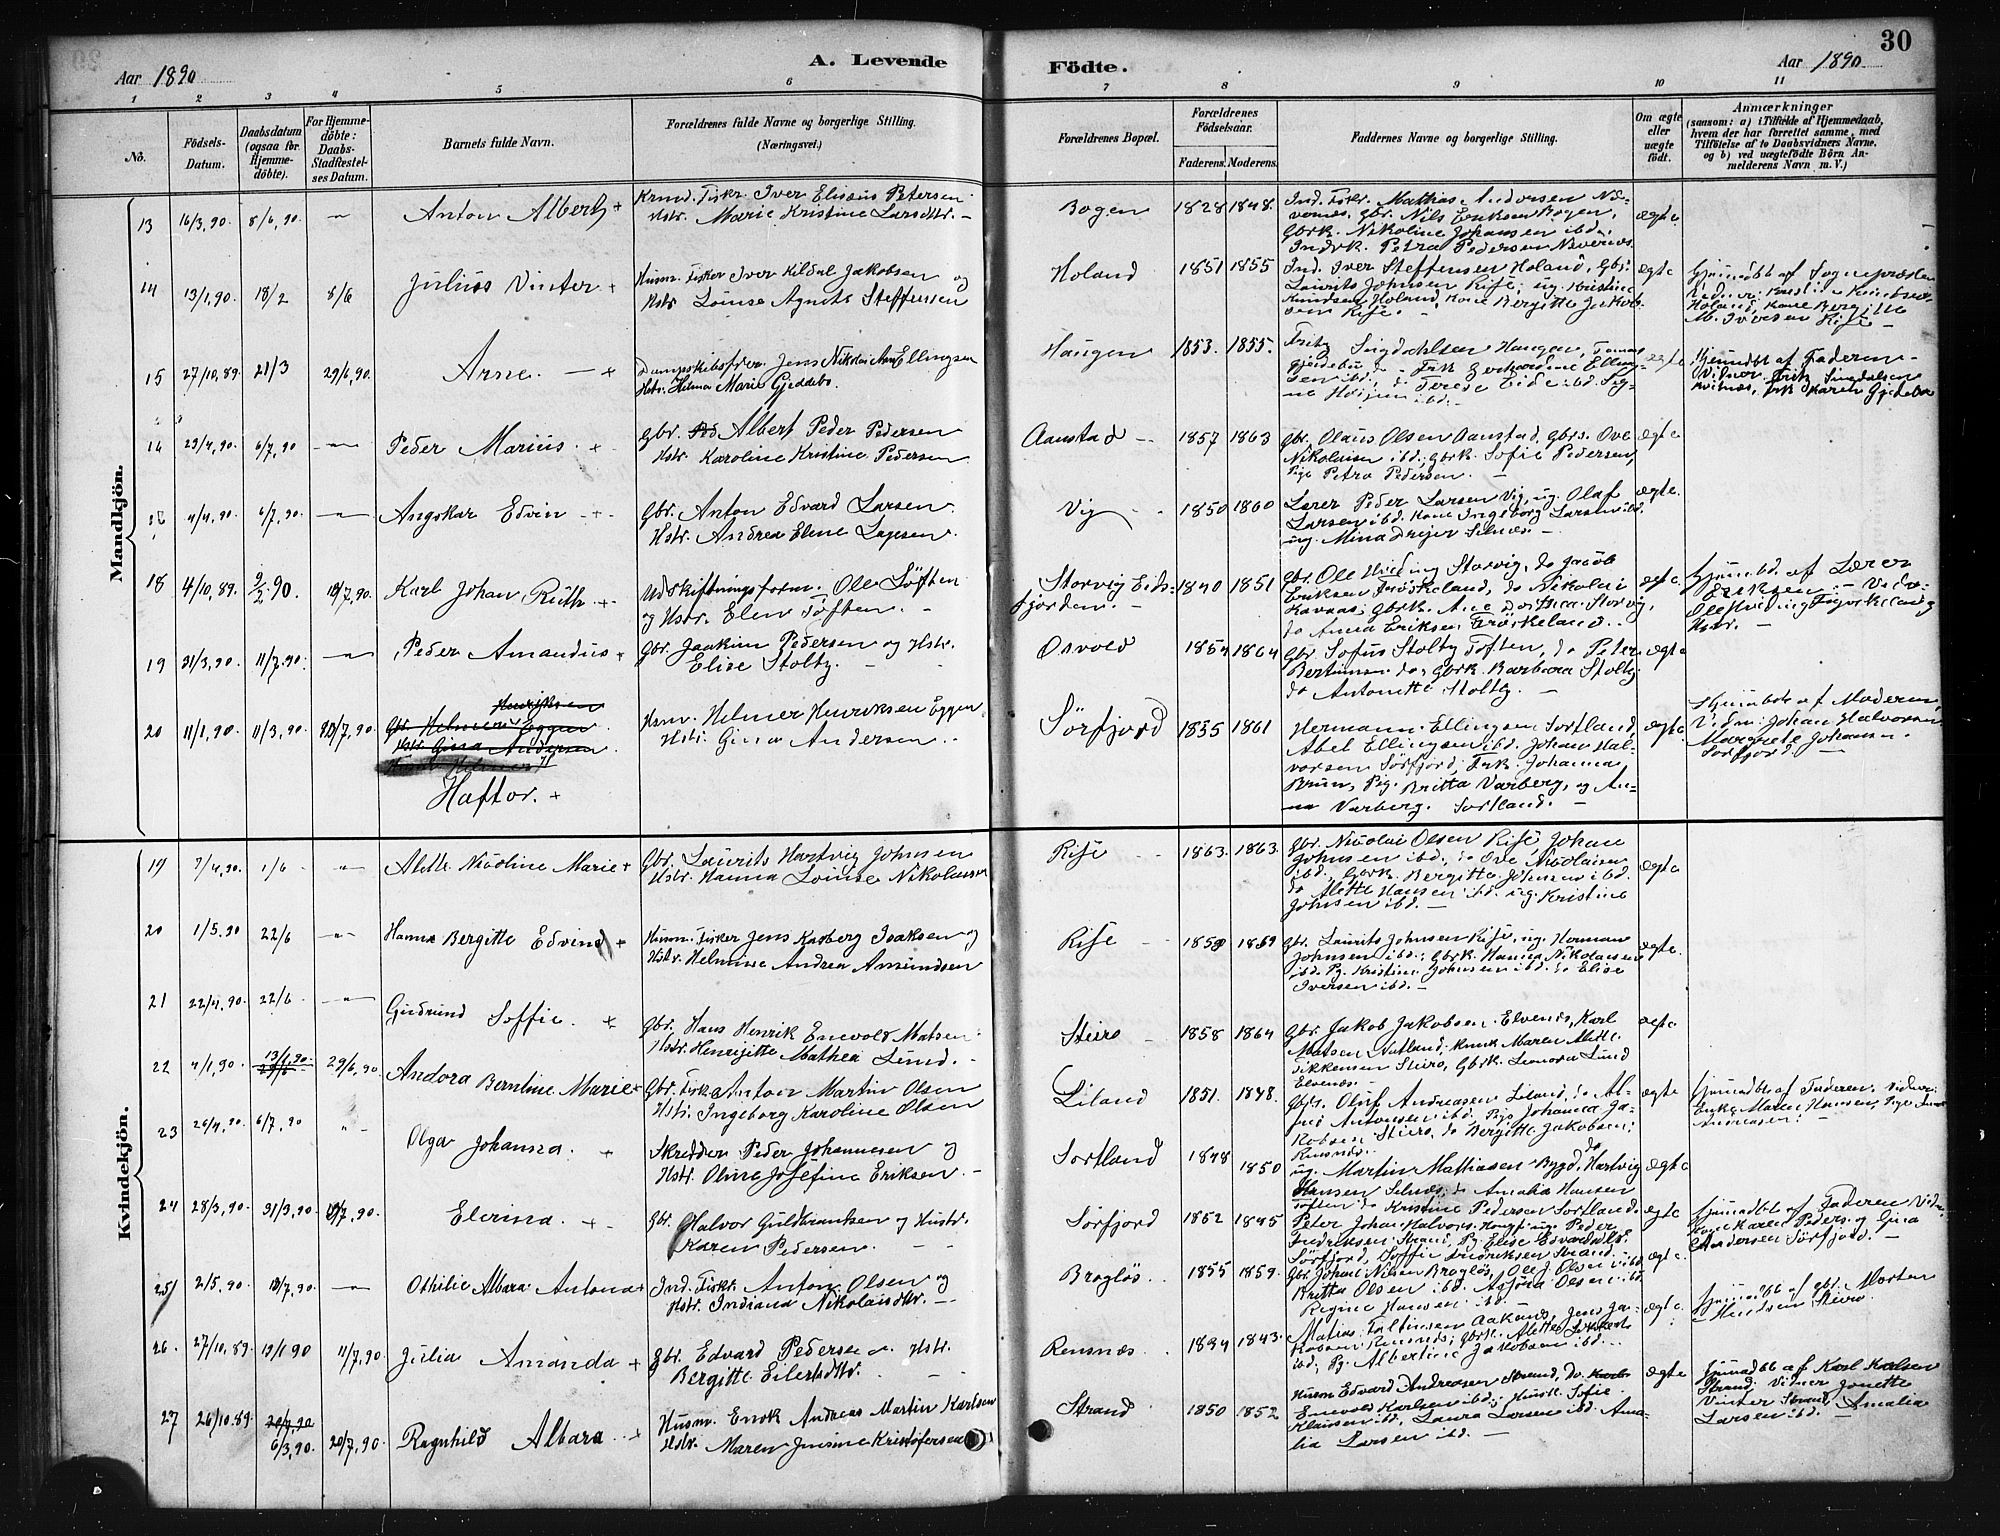 Aar 1890
A. Levende
Födte.
Aar 1890
30
1 2 3 4 5 6 7 8 9 10 11
No.
Födsels-
Datum.
Daabsdatum
(ogsaa for
Hjemme-
döbte).
For Hjemme-
döbte:
Daabs-
Stadfæstel-
ses Datum.
Barnets fulde Navn.
Forældrenes fulde Navne og borgerlige Stilling.
(Næringsvei.)
Forældrenes Bopæl.
Forældrenes
Födselsaar.
Faderens. Moderens.
Faddernes Navne og borgerlige Stilling.
Om ægte
eller
uægte
födt.
Anmærkninger
(saasom: a) i Tilfælde af Hjemmedaab,
hvem der har forrettet samme, med
Tilföielse af to Daabsvidners Navne.
og b) ved uægtefödte Börn An-
melderens Navn m. V.)
Mandkjön.
13 16/3, 90 8/6, 90 — Anton Albert +
Krmd. Fiskr. Iver Elisæus Petersen
Hstr. Marie Kristine Larsdttr. —
Bogen 1828 1848.
Ind. Fiskr. Mathias Andersen
Gbr. Nils Eriksen Bogen,
Gbrk. Nikoline Johansen ibd.
Indrk. Petra Pedersen
ægte
14 13/1, 90 18/2 8/6 Julius Vinter +
Husm. Fisker Iver Kildal Jakobsen og
Hstr. Louise Agnete Steffensen
Holand 1851 1855
Ind. Iver Steffensen Holand, Gbr.
Laurits Johnsen Rise, ug. Kristine
Knudsen Holand, Kone Bergitte Jakob-
sen Rise.
ægte
Hjemdbt af Sognepræsten
Holand, Kone Bergitte
M. Iversen Rise —
15 27/10, 89. 21/3 29/6, 90. Arne. — +
Dampskibsfører Jens Nikolai Ellingsen
Hstr. Helma Marie Gjeddebo.
Haugen 1853. 1855.
Fritz Sugdahlsen Haugen,
sen ibd. do Terese Eide ibd. Sig-
ne ibd.
ægte
Hjemdbt af Faderen —
Vidner: Fritz
frk Karen
16 29/4, 90. 6/7, 90 — Peder Marius. +
Gbr. Albert Peder Pedersen
Hstr. Karoline Kristine Pedersen
Aanstad — 1857 1863
Gbr. Olaus Olsen Aanstad, Gbrs. Ove
Nikolaisen ibd., Gbrk. Sofie Pedersen,
Pige Petra Pedersen. —
ægte
4/4, 90. 6/7, 90 — Angskar Edvin — +
Gbr. Anton Edvard Larsen
Hstr. Andrea Elene Larsen
Vig 1850 1860
Lærer Peder Larsen Vig, ug. Olaf
Larsen ibd. Kone Ingeborg Larsen ibd.
ug. Mina Dreyer Selnæs. —
ægte.
18 4/10, 89. 9/2 90. 12/7, 90. Karl Johan Rüth +
Udskiftningsform. Ole Töften
og Hstr. Elen Töften. —
Storvig Eids-
fjorden. — 1840 1851
Gbr. Ole Hviding Storvig, do Jacob
Eriksen Fröskeland, do Nikolai
Kavaas, Gbrk. Ane Dorthea Storvig,
do Anna Eriksen Fröskeland.
ægte
Hjemdbt. af Lærer
Eriksen — Vidn.
Ole Hviding Fröskeland og
Hstr. —
19 31/3, 90. 11/7. 90. — Peder Amandus +
Gbr. Joakim Pedersen og Hstr.
Elise Stoltz. —
Osvold 1854 1864
Gbr Sofus Stoltz Toften, do Peter
Berthinsen do, Gbrk. Barbara Stoltz
do Antonette Stoltz. —
ægte
20 11/1, 90 11/3, 90 12/7, 90. Henriksen
Gbr. Helmer Eggen
Hstr. Gina Andersen.
Husm. Helmer H
Haftor. +
Hsm. Helmer Henriksen Eggen
Hstr. Gina Andersen. —
Sörfjord 1835 1861
Hermann Ellingsen Sortland,
Abel Ellingsen ibd. Johan Hal-
vorsen Sörfjord, Frk. Johanna
Bruun, Pig. Britta Varberg, og An-
na Varberg. Sortland. —
ægte
Hjemdbt af Moderen,
Vidn. Johan Halvorsen
Margrete Johansen
Sörfjord —
Kvindekjön.
19 7/4, 90. 1/6 — Alette Nicoline Marie +
Gbr. Laurits Hartvig Johnsen
Hstr. Hanna Louise Nikolaisen
Rise 1863. 1863.
Gbr. Nicolai Olsen Rise Johan
Johnsen ibd., do Ove Nicolaisen
ibd., Gbrk. Bergitte Johnsen ibd.
do Alette Hansen ibd. ug. Kristine
Johnsen ibd. —
ægte
20 1/5, 90 22/6 — Hanna Bergitte Edvind +
Husm. Fisker Jens Kasberg Isaksen og
Hstr. Helmine Andrea Amundsen
Rise 1859 1869
Gbr. Laurits Johnsen Rise, ug. Herman
Johnsen ibd., Gbrk. Hanna Nikolaisen
ibd. Pg. Kristine Johnsen ibd. do Elise
Iversen ibd. —
ægte.
21 22/4, 90. 22/6 — Gudrund Soffie. +
Gbr. Hans Henrik Enevold Matsen
Hstr. Henrijette Mathea Lund. —
Steiro 1858 1864
Gbr. Jakob Jakobsen Elvenes, Karl
Matsen, Maren Mette
Steiro, Gbrk. Leonora Lund
Elvenes.
ægte
22 4/1, 90. 13/1, 90. 29/6 29/6, 90. Andora Berntine Marie +
Gbr. Fisk. Anton Martin Olsen
Hstr. Ingeborg Karoline Olsen
Liland 1851. 1848.
Gbr. Oluf Andreasen Liland, do Al-
fred Antonsen ibd. Pige Johanna Ja-
kobsen Steiro, do Bergitte Jakobsen,
Rensnæs.
ægte
Hjemdbt af Faderen. Vidner:
Enke Maren Hansen, Pige
Andreasen.
23 26/4, 90. 6/7, 90 — Olga Johanna. +
Skredder Peder Johannesen og
Hstr. Oline Josefine Eriksen. —
Sortland 1848 1850
ug. Martin Mathiasen Bygd, do Hartvig
Hansen Selnæs, do Amalia Hansen
Toften do Kristine Pedersen Sortland
ægte
24 28/3, 90. 31/3, 90 12/7, 90. Elerina. +
Gbr. Halvor Guldbrantsen og Hustr.
Karen Pedersen. —
Sörfjord 1862 1845
Peter Johan Halvors. ug. Peder
Fredriksen Strand, Pg. Elise Edvardsdtr.
Sörfjord, Soffie Fredriksen Strand. —
ægte
Hjemdbt af Faderen Vidn.
Kone Karen Peders. og Gina
Andersen Sörfjord. —
25 2/5, 90. 12/7, 90 — Othilie Albara Antona +
Ind. Fiskr. Anton Olsen og
Hstr. Indiana Nikolaisdttr. —
Brogløs. 1855 1859.
Gbr. Johan Nilsen Brogløs, Ole J. Olsen ibd.
Britta Olsen ibd. Olsen ibd.
Regine Hansen ibd.
ægte.
26. 27/10, 89. 19/1 90 11/7, 90 Julia Amanda +
Gbr. Edvard Pedersen Hstr.
Bergitte Eilertsdttr. —
Rensnæs 1843.
Matias Taltinsen, Jens Ja-
kobsen Rensnæs, Gbrk. Alette
ibd. Pg. Albertine Jakobsen ibd. —
ægte
Hjemdbt af Gbr. Morten
Knudsen Steiro.
27 26/10, 89. 20/7, 90 6/3, 90. 20/7, 90. Ragnhild Albara +
Husm. Enok Andreas Martin Karlsen
Hstr. Maren Jensine Kristofersen
Strand 1850 1852
Husm Edvard Andreasen Strand, do
Enevold Karlsen ibd., Husk. Sofie
Klausen ibd, Laura Larsen ibd. Ama-
lia Larsen ibd. —
ægte
Hjemdbt af Karl Karlsen
Strand, Vidner Jonette
Vinter Strand, Amalia
Larsen ibd. —